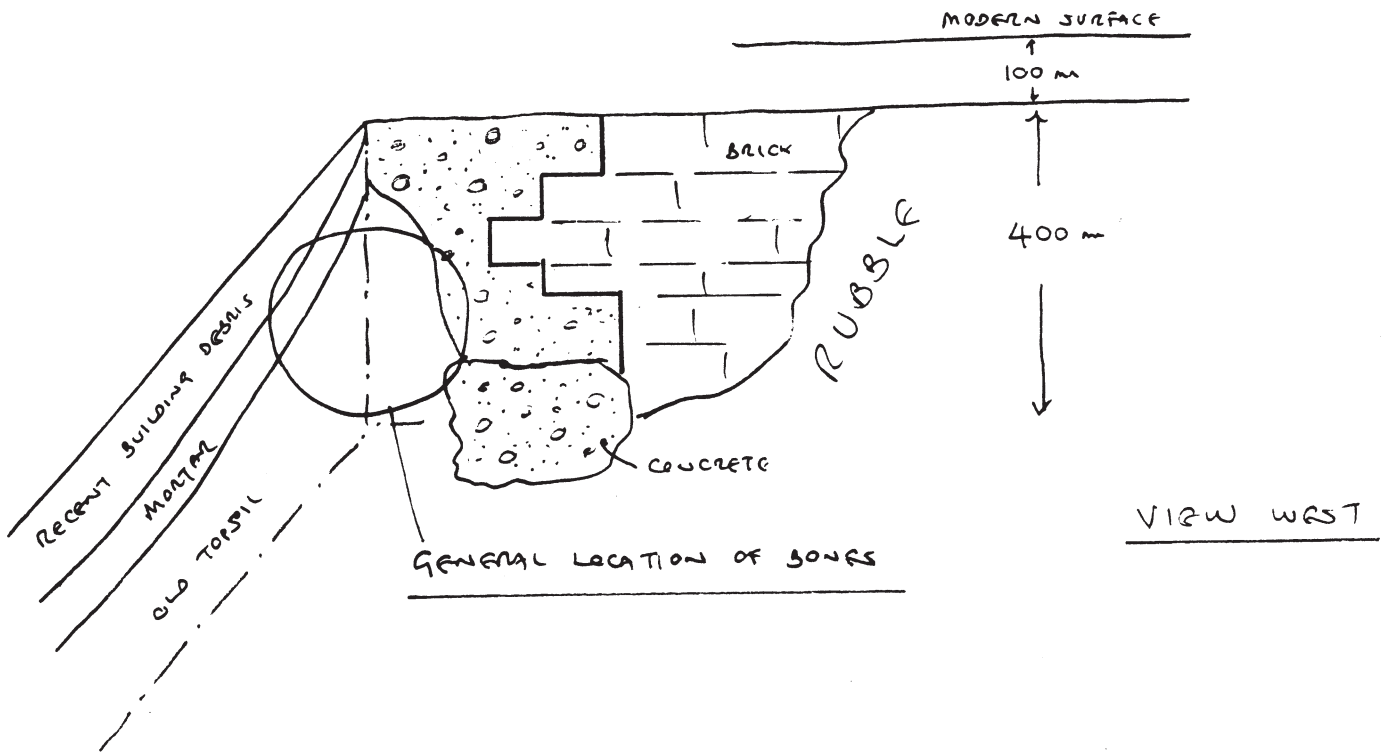 MODERN SURFACE
100 m
BRICK
RUBBLE
400 m
RECENT BUILDING DEBRIS
MORTAR
OLD TOPSOIL
CONCRETE
GENERAL LOCATION OF BONES
VIEW WEST